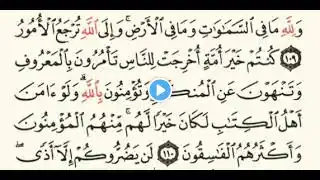 وَلِلَّهِ مَا فِي السَّمَاوَاتِ وَمَا فِي الْأَرْضِ ۚ وَإِلَى اللَّهِ تُرْجَعُ الْأُمُورُ
١٠٩ كُنتُمْ خَيْرَ أُمَّةٍ أُخْرِجَتْ لِلنَّاسِ تَأْمُرُونَ بِالْمَعْرُوفِ
وَتَنْهَوْنَ عَنِ الْمُنكَرِ وَتُؤْمِنُونَ بِاللَّهِ ۗ وَلَوْ ءَامَنَ
أَهْلُ الْكِتَابِ لَكَانَ خَيْرًا لَّهُم ۚ مِّنْهُمُ الْمُؤْمِنُونَ
وَأَكْثَرُهُمُ الْفَاسِقُونَ ١١٠ لَن يَضُرُّوكُمْ إِلَّا أَذًى ۖ